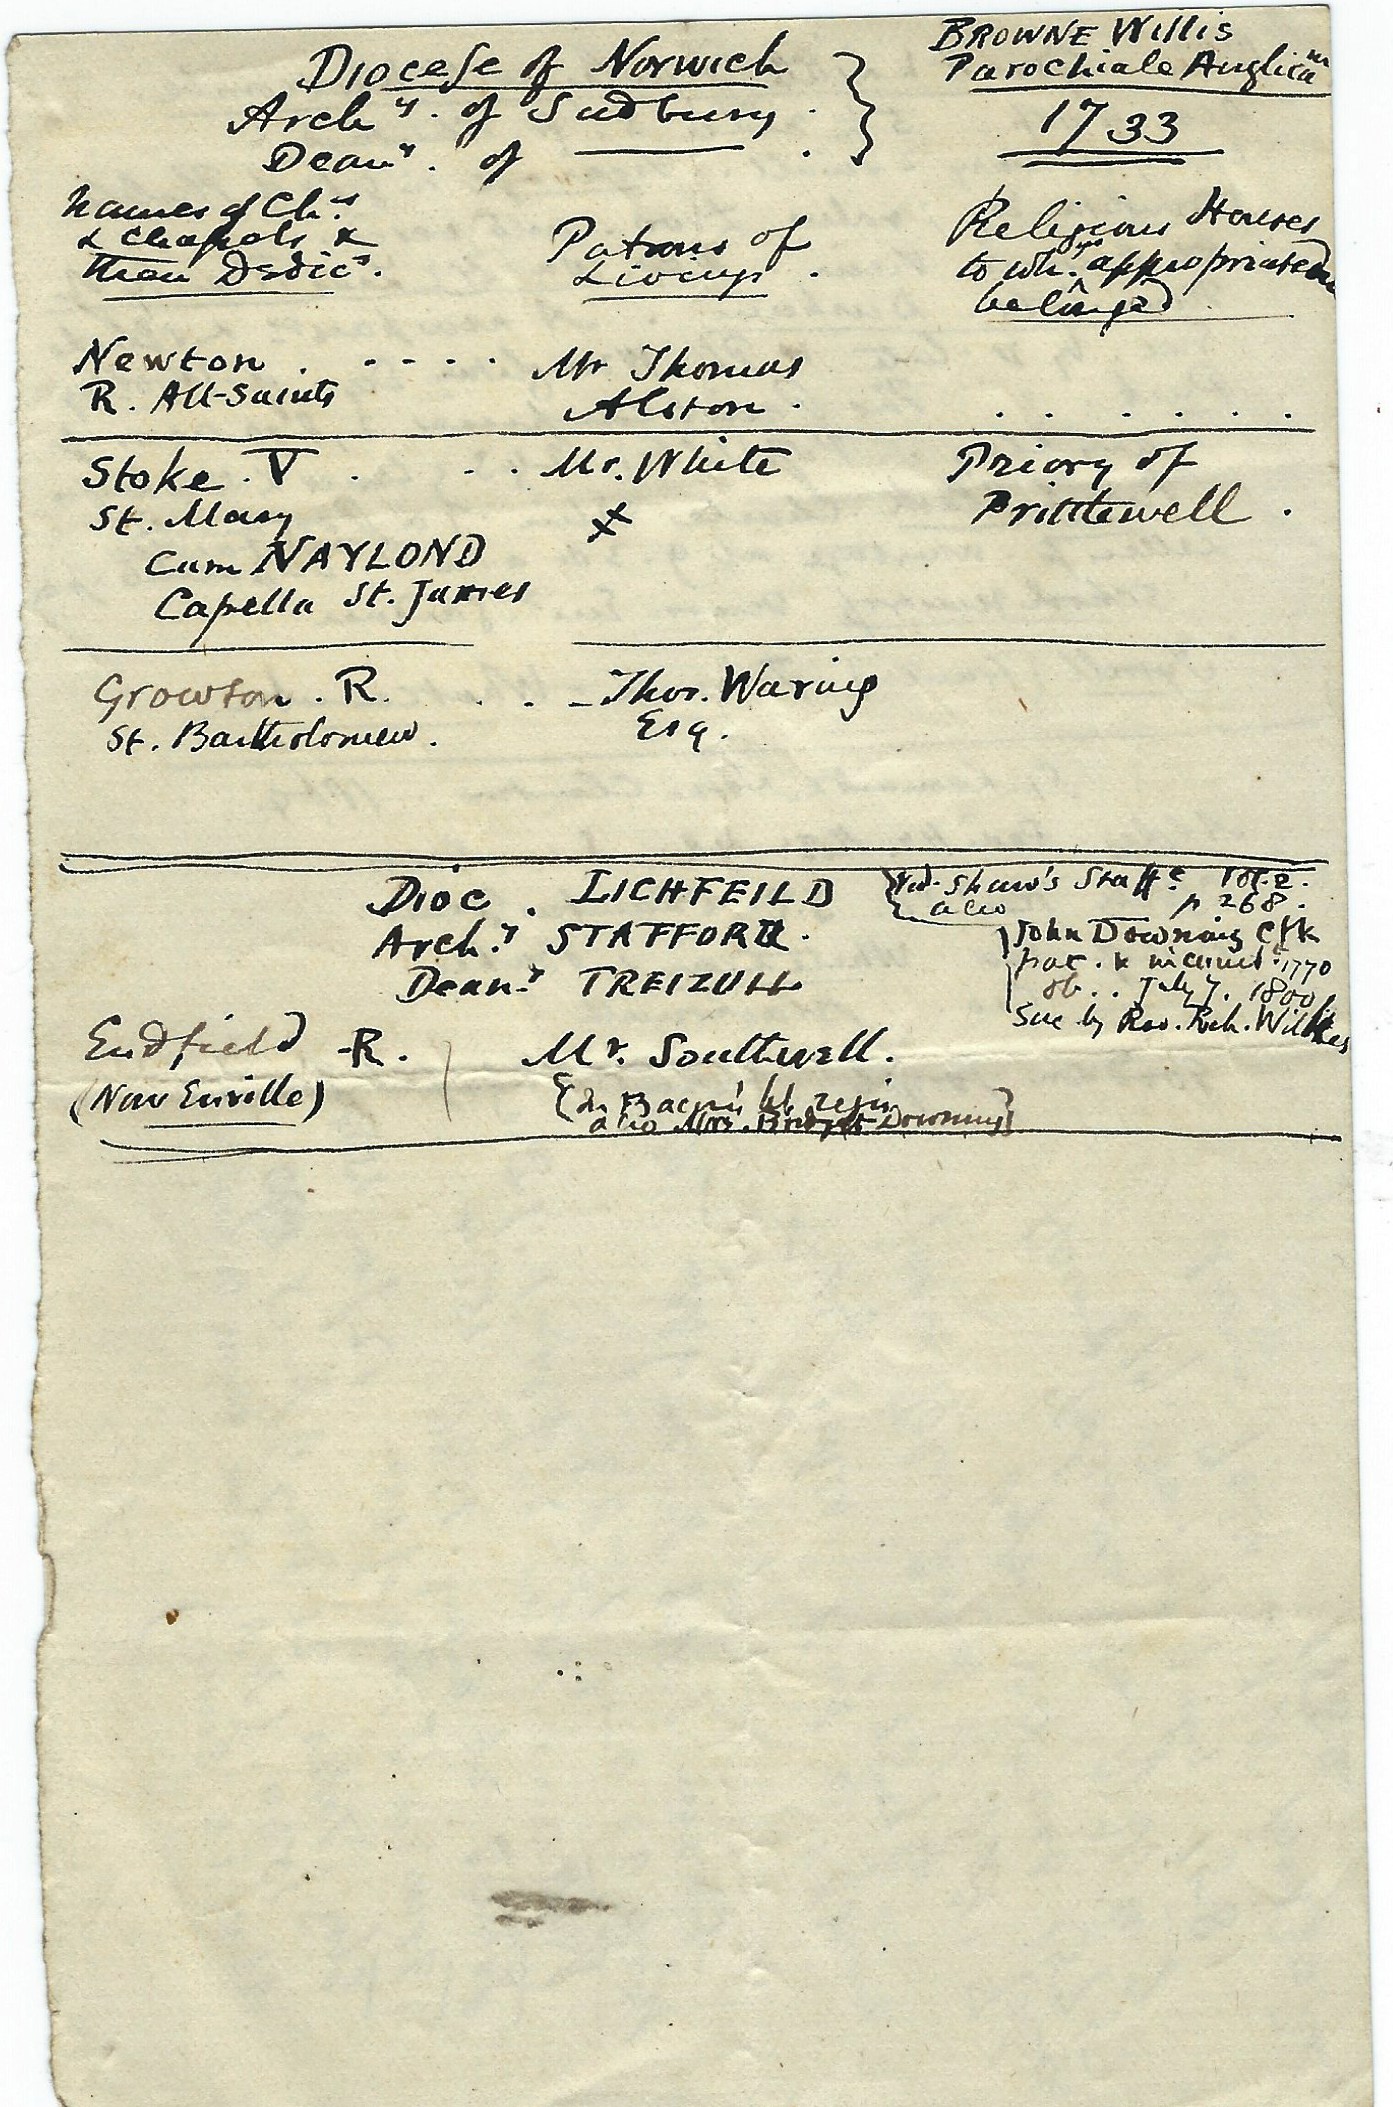 Diocese of Norwich
Archy. of Sudbury.
Deany. of
BROWNE Willis
Parochiale Anglicanm
1733
Names of Chs
& Chapels &
their Dedics.
Patrons of
Livings.
Religious Houses
to wh. appropriated
belonged
Newton . - - - -
R. All-Saints
Mr Thomas
Alston.
. . . . . .
Stoke. V . . .
St. Mary
Cum NAYLOND
Capella St. James
Mr. White
x
Priory of
Prittlewell.
Growton. R. . . -
St. Bartholomew.
Thos. Waring
Esq.
Dioc. LICHFEILD
Archy STAFFORD.
Deany TREIZULL
Vid. Shaw's Staffe vol. 2.
also p 268.
John Downing Clk
pat. & incumt. 1770
ob. . July 7. 1800
Suc by Rev. Rich. Wilkes
Endfield R.
(Now Enville)
Mr. Southwell.
{In Bacon's lib regis
also Mrs. Bridget Downing}